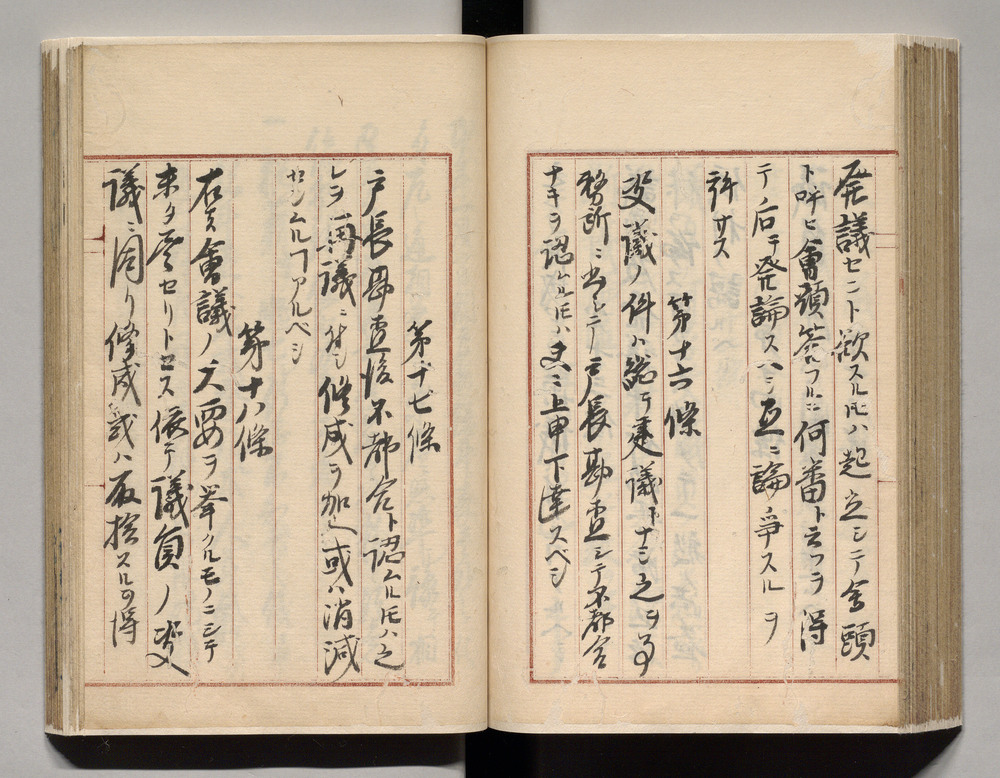 発議セント欲スル𪜈ハ起立シテ会頭
ト呼ヒ會頭答フルニ何番ト云フヲ得
テ后チ発論スヘシ互ニ論争スルヲ
許サス
第十六條
決議ノ件ハ総テ建議ト ナシ之ヲ事
務所ニ出シテ戸長勘査シテ不都合
ナキヲ認ムル𪜈ハ ニ上申下達スベシ
第十七條
戸長勘査後不都合ト認ムル𪜈ハ之
レヲ再議ニ付シ修成ヲ加ヘ或ハ消滅
セシムルヿアルベシ
第十八條
右ハ會議ノ大要ヲ挙クルモノニシテ
未タ尽セリトセス依テ議員ノ決
議ニ因リ修成或ハ取捨スルヿヲ得